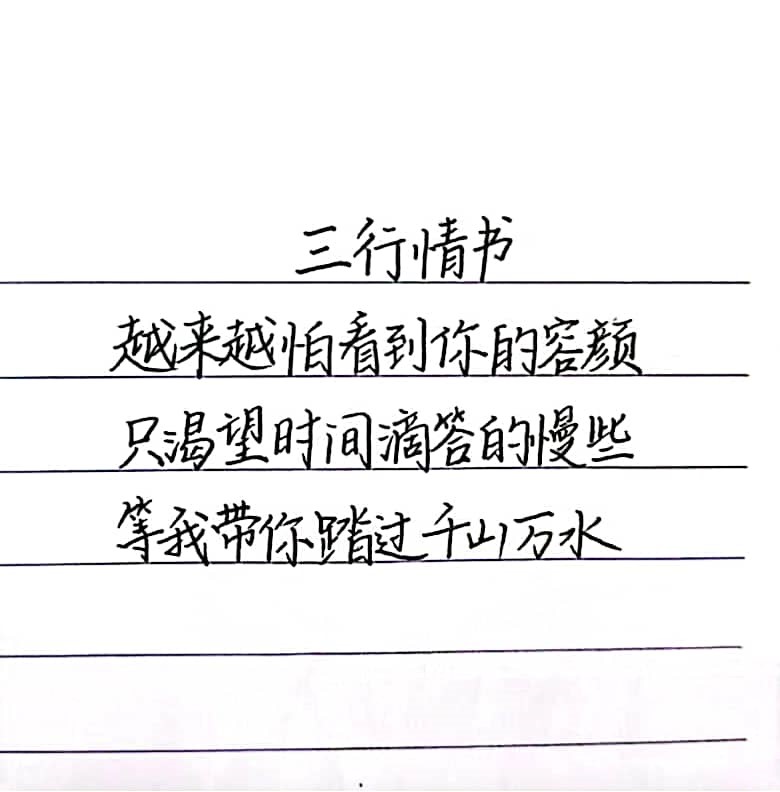 三行情书
越来越怕看到你的容颜
只渴望时间滴答的慢些
等我带你踏过千山万水